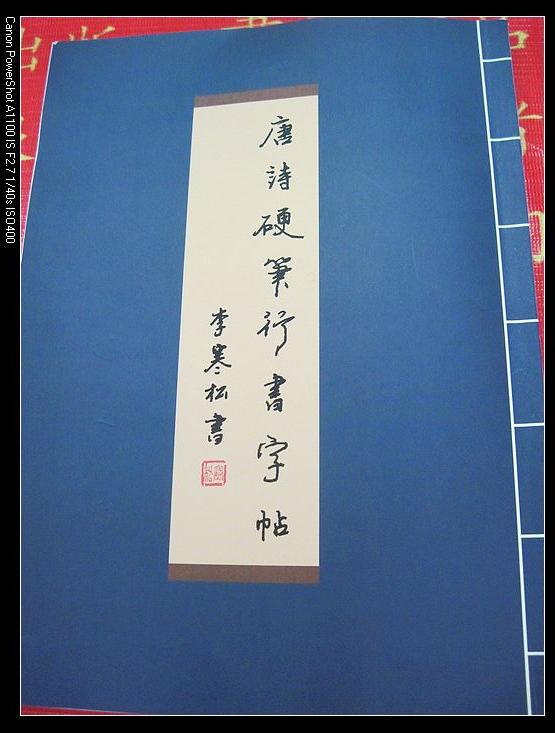 唐詩硬筆行書字帖
李寒松書
Canon PowerShot A1100 IS F2.7 1/40s ISO400